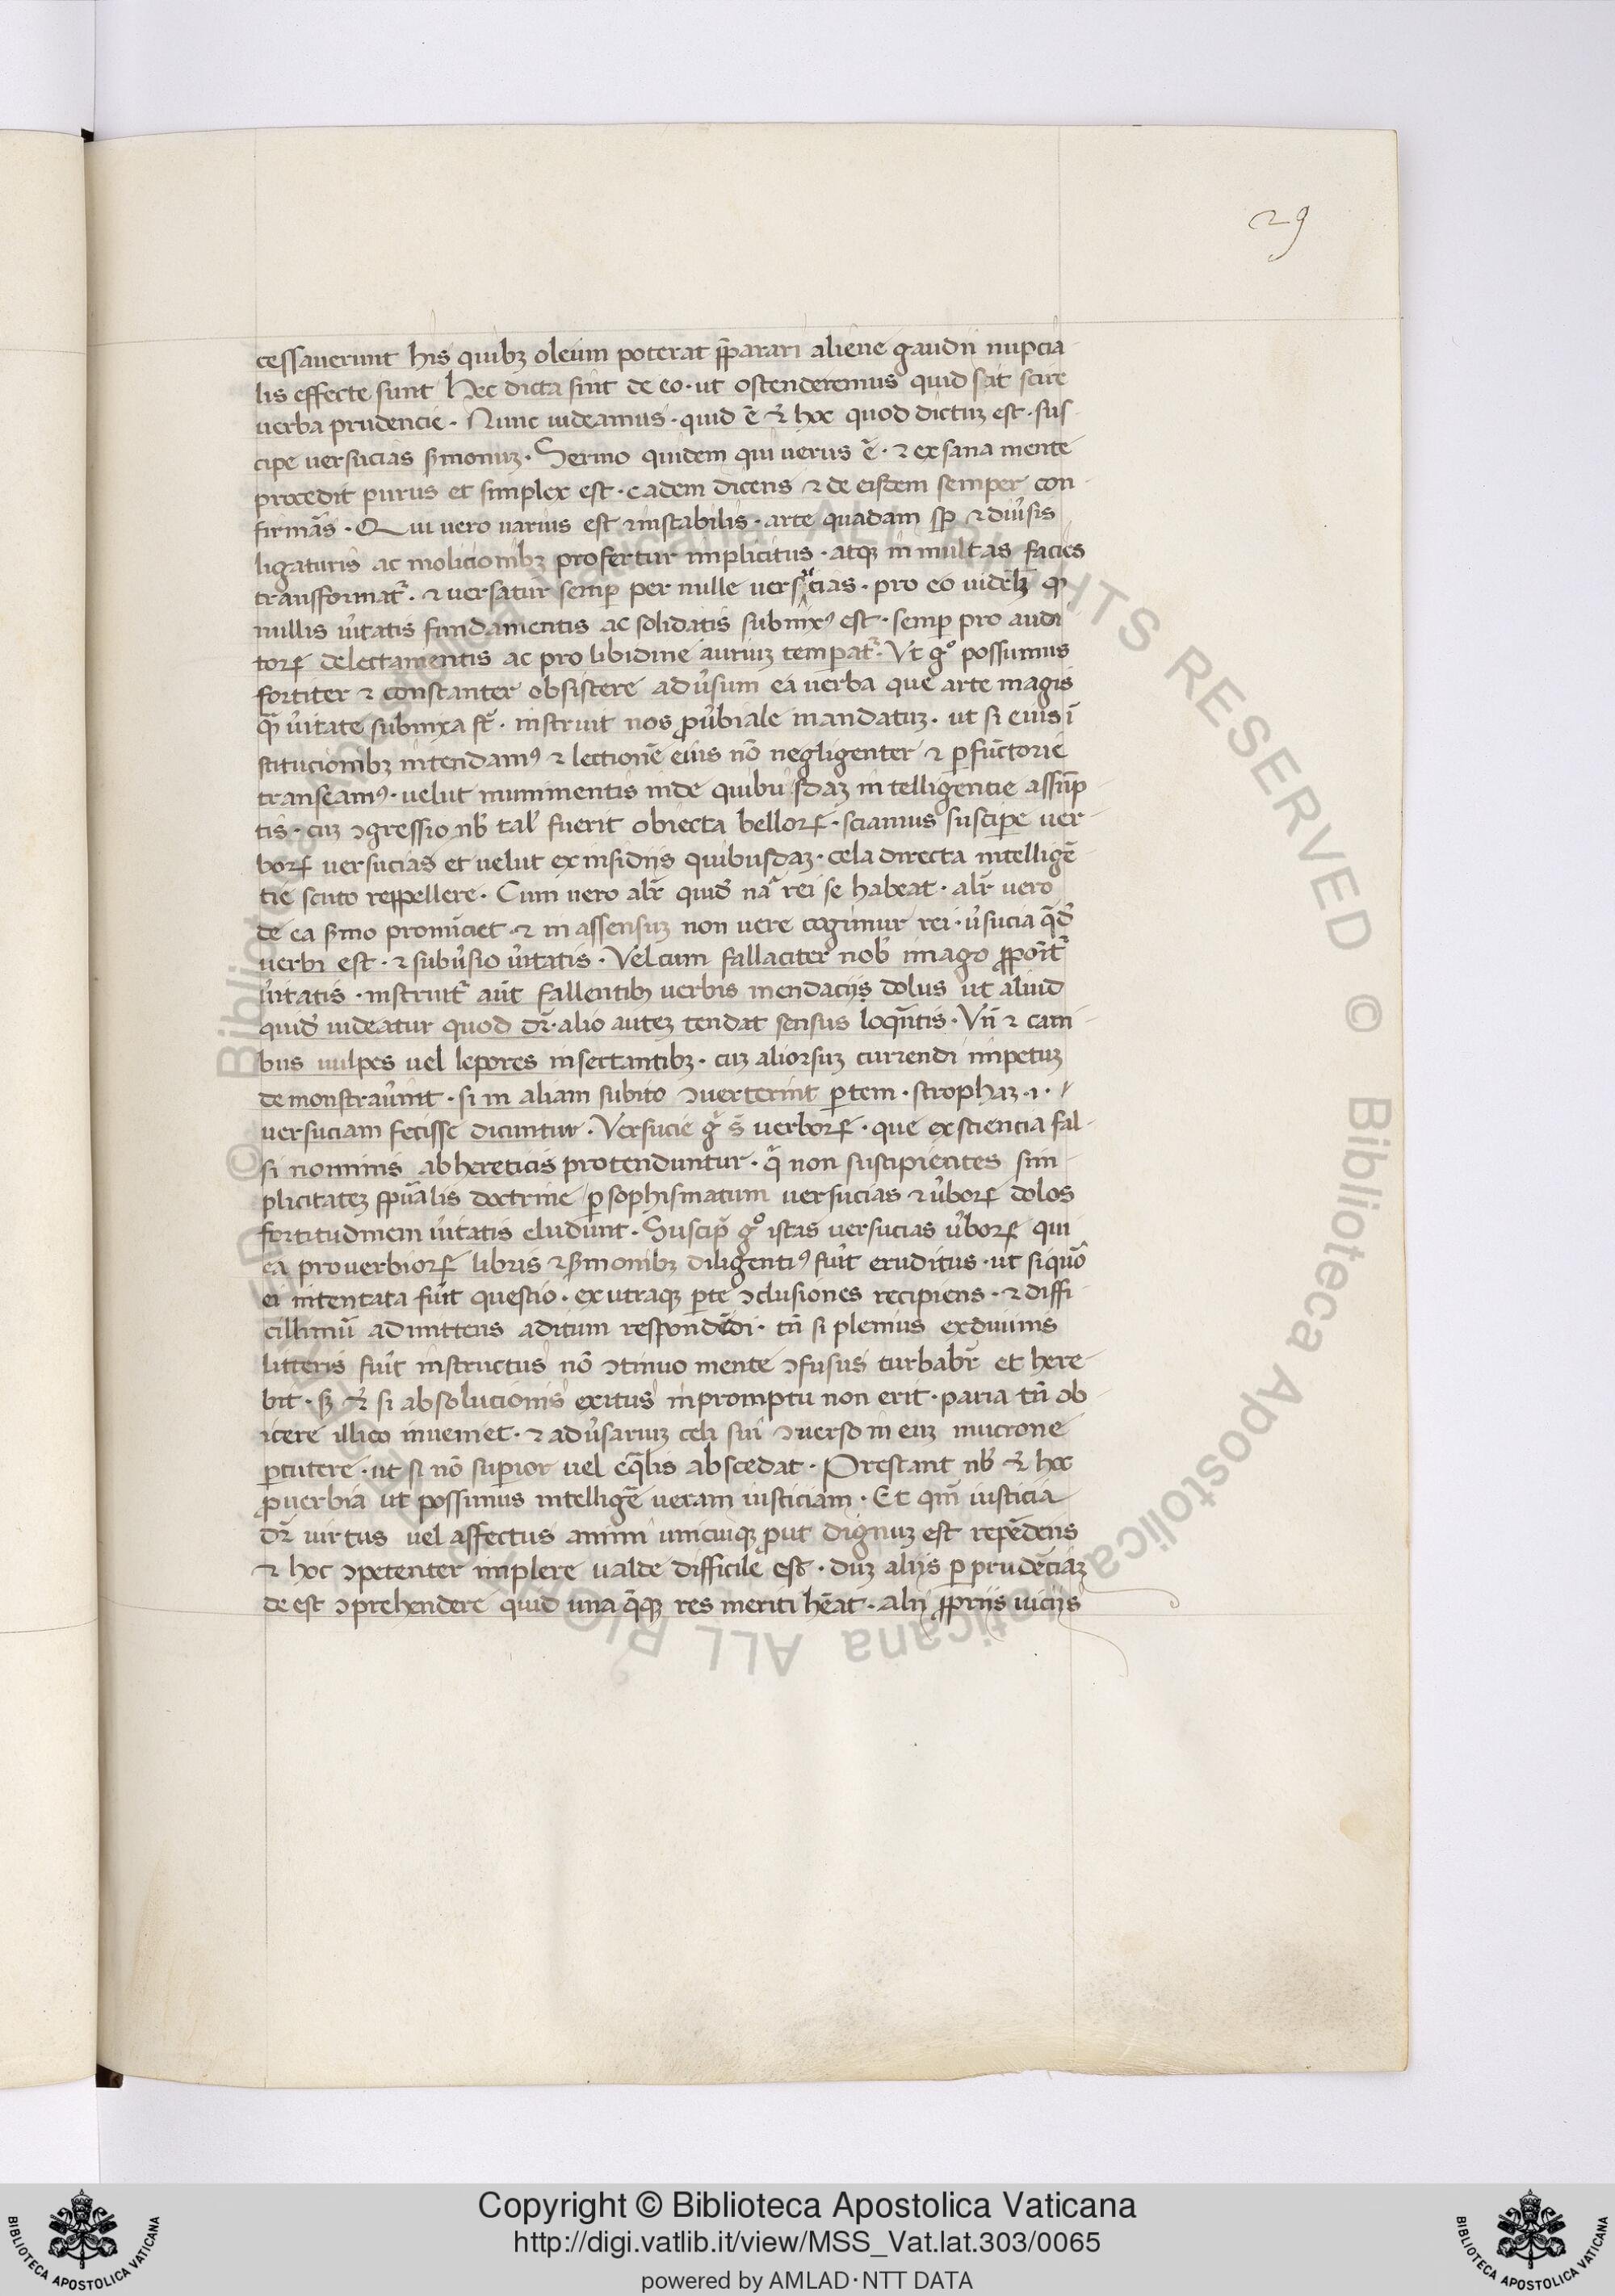 29
cessauerunt his quibꝫ oleum poterat p̄parari aliene gaudii nupcia
lis effecte sunt Hec dicta sint de eo · ut ostenderemus quid sit scire
uerba prudencie · Nunc uideamus · quid ē ⁊ hoc quod dictuꝫ est · sus
cipe uersucias s̓monuꝫ · Sermo quidem qui uerus ē · ⁊ ex sana mente
procedit purus et simplex est · eadem dicens ⁊ de eisdem semper con
firmās · Qui uero uarius est ⁊ instabilis · arte quadam sꝑ ⁊ diu̓sis
ligaturis ac molicionibꝫ profertur implicitus · atqꝫ in multas facies
transformat᷑ · ⁊ uersatur semꝑ per mille uersucias · pro eo uidelꝫ ꝙ
nullis u̓itatis fundamentis ac solidatis subnixꝰ est · semꝑ pro audi
toꝝ delectamentis ac pro libidine auriuꝫ temperat᷑ · Vt gͦ possumus
fortiter ⁊ constanter obsistere aduu̓sum ea uerba que arte magis
ꝙ̄ u̓itate subnixa st̄ · instruit nos ꝓu̓biale mandatuꝫ · ut si eius ī
stitucionibꝫ intendamꝰ ⁊ lectionē eius nō negligenter ⁊ ꝑfūctorie
transeamꝰ · uelut munimentis inde quibusdaꝫ intelligencie assūp
tis · cuꝫ ꝯgressio nb̓ tal̓ fuerit obiecta belloꝝ · sciamus suscipe uer
boꝝ uersucias et uelut ex insidiis quibusdaꝫ · tela directa intelligē
tie scuto reppellere · Cum uero al̓r quid̓ nā rei se habeat · al̓r uero
de ea s̓mo pronūciet · ⁊ in assensuꝫ non uere cogimur rei · u̓sucia q̄d̓
uerbi est · ⁊ subu̓sio u̓itatis · Vel cum fallaciter nob̓ imago p̄ponit᷑
u̓itatis · instruit᷑ aūt fallentibꝫ uerbis mendaciis dolus ut aliud
quid̓ uideatur quod dr̄ · alio auteꝫ tendat sensus loq̄ntis · Vn̄ ⁊ cani
bus uulpes uel lepores insectantibꝫ · cuꝫ aliorsuꝫ currendi impetuꝫ
demonstrau̓int · si in aliam subito ꝯuerterint ꝑtem · strophaꝫ · i ·
uersuciam fecisse dicuntur · Versucie g̓ s̄ uerboꝝ · que ex sciencia fal
si nominis ab hereticis protenduntur · q̓ non suscipientes sim
plicitateꝫ sp̄ualis doctrine ꝑ sophismatum uersucias ⁊ u̓boꝝ dolos
fortitudinem u̓itatis eludunt · Suscip̓ gͦ istas uersucias u̓boꝝ qui
ea prouerbioꝝ libris ⁊ s̓monibꝫ diligentiꝰ fuit̓ eruditus · ut si quō
ei intentata fuit̓ questio · ex utraqꝫ ꝑte ꝯclusiones recipiens · ⁊ diffi
cillimū admittens aditum respondēdi · tn̄ si plenius ex diuinis
litteris fuit̓ instructus nō ꝯtinuo mente ꝯfusus turbabr̄ et here
bit · sꝫ ⁊ si absolucionis exitus in promptu non erit · paria tn̄ ob
icere illico inueniet · ⁊ adu̓sariuꝫ teli sui ꝯuerso in euꝫ mucrone
ꝑcutere · ut si nō superior uel eq̄lis abscedat · Prestant nb̓ ⁊ hoc
ꝓuerbia ut possimus intelligē ueram iusticiam · Et qm̄ iusticia
dr̄ uirtus uel affectus animi unicuiqꝫ ꝓut dignuꝫ est repēdens
⁊ hoc ꝯpetenter implere ualde difficile est · duꝫ aliis ꝑ prudēciaꝫ
de est ꝯprehendere quid una q̄qꝫ res meriti hēat · alii ꝓpriis uiciis
© Biblioteca Apostolica Vaticana ALL RIGHTS RESERVED
Copyright © Biblioteca Apostolica Vaticana
http://digi.vatlib.it/view/MSS_Vat.lat.303/0065
powered by AMLAD·NTT DATA
BIBLIOTECA APOSTOLICA VATICANA
BIBLIOTECA APOSTOLICA VATICANA